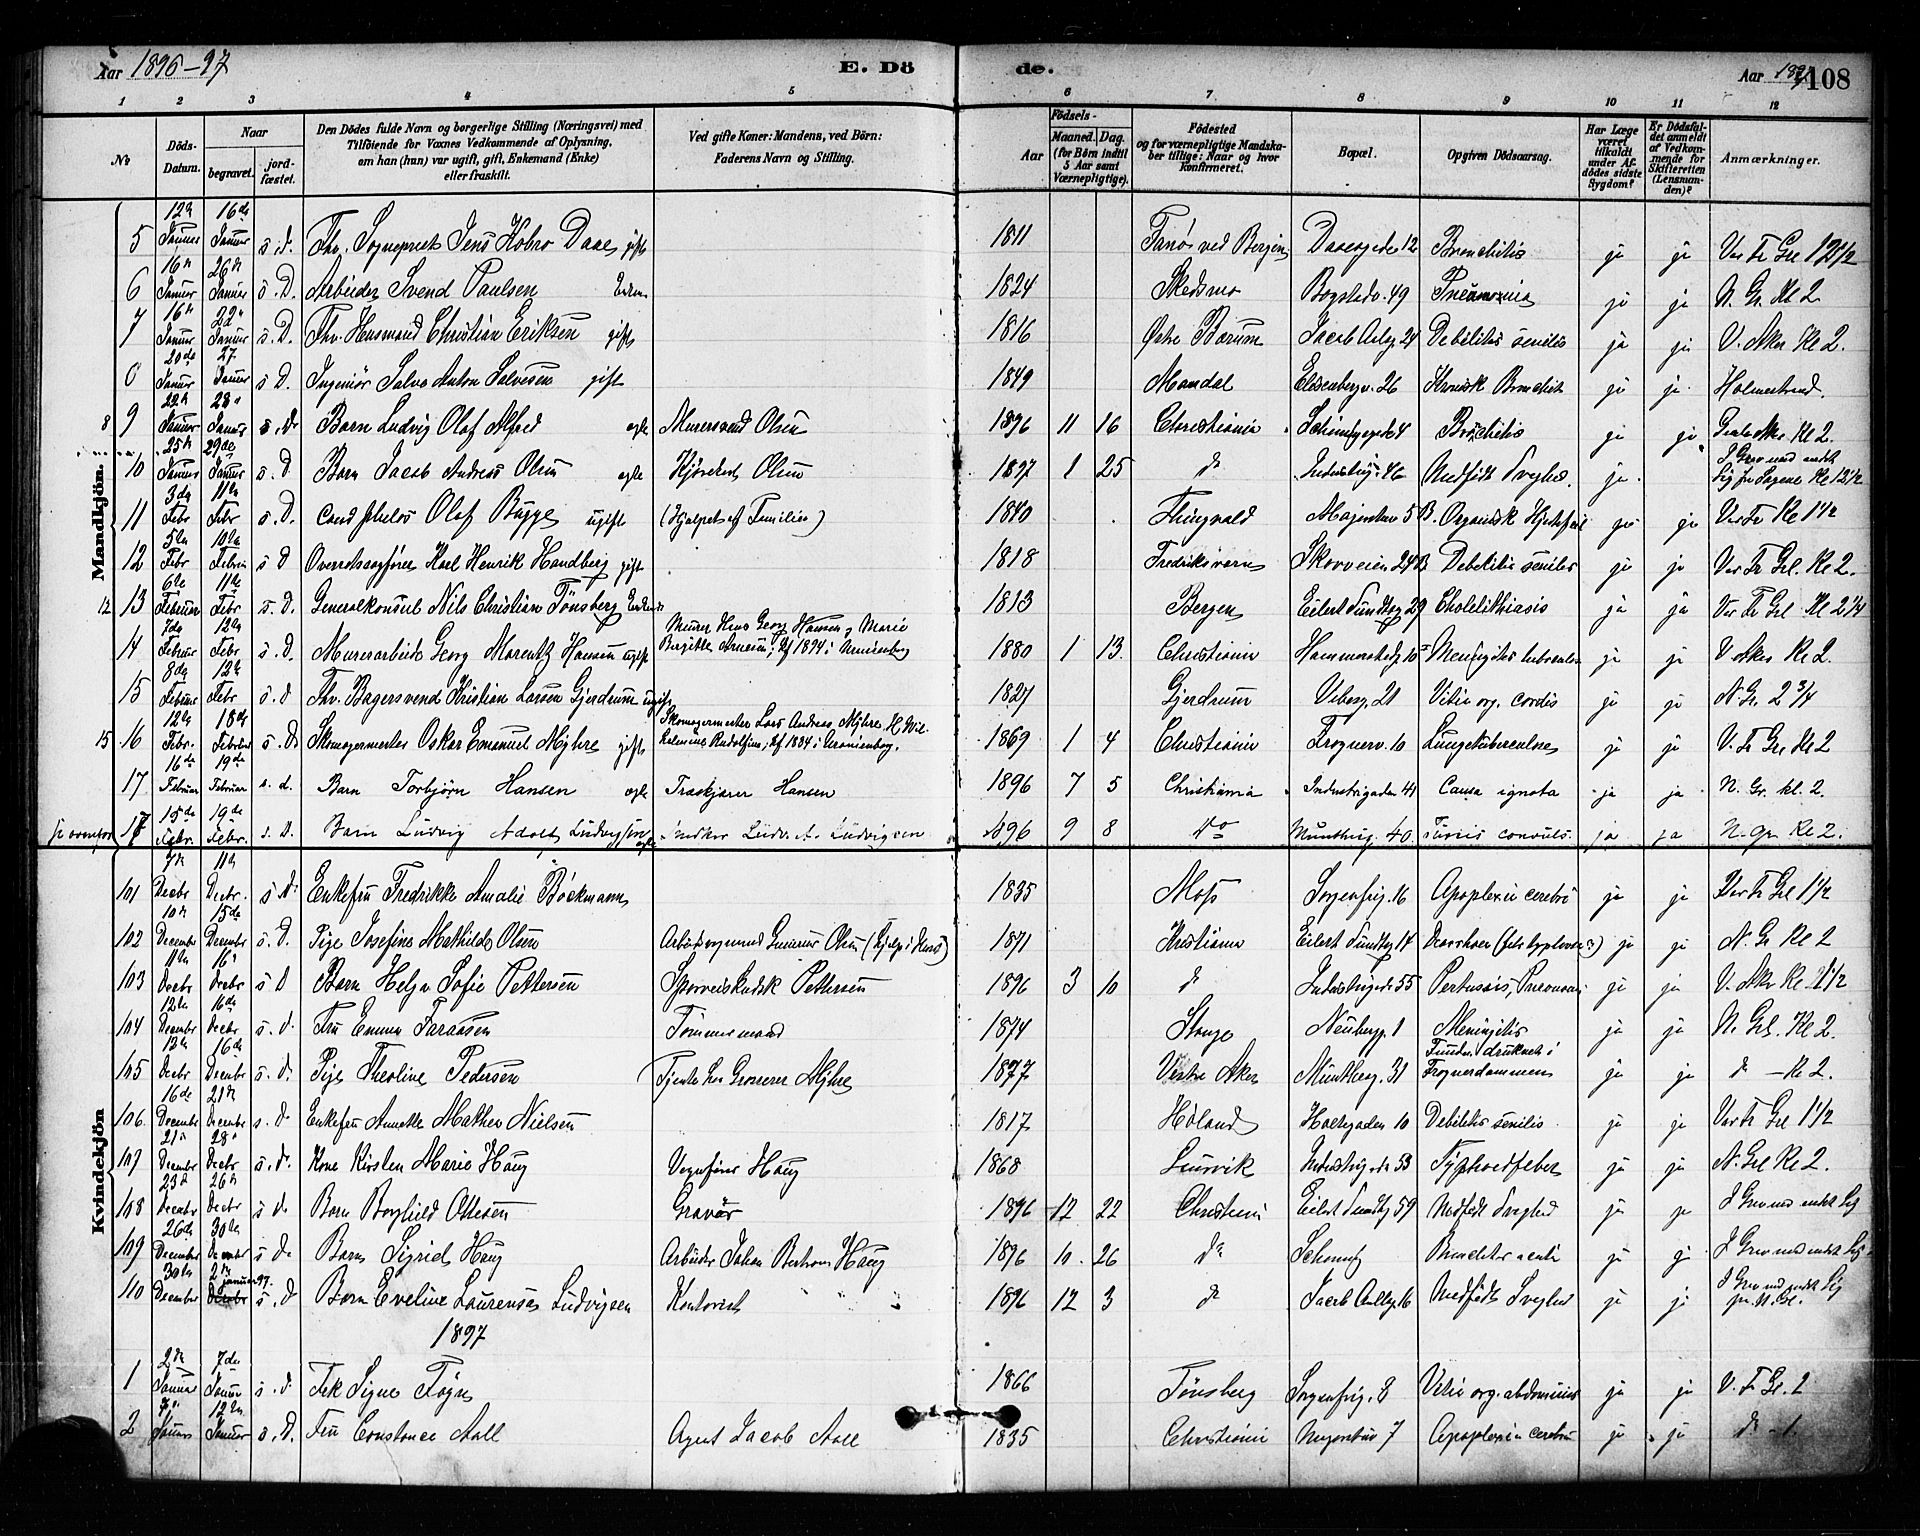 Aar 1896-97
E. Döde.
Aar 1897 108
1 2 3 4 5 6 7 8 9 10 11 12
No
Döds-Datum.
Naar
begravet.
jord-fæstet.
Den Dödes fulde Navn og borgerlige Stilling (Næringsvei) med Tilföiende for Voxnes Vedkommende af Oplysning, om han (hun) var ugift, gift, Enkemand (Enke) eller fraskilt.
Ved gifte Koner: Mandens, ved Börn: Faderens Navn og Stilling.
Födsels-
Aar
Maaned. Dag. (for Börn indtil 5 Aar samt Værnepligtige).
Födested og for værnepligtige Mandskaber tillige: Naar og hvor konfirmeret.
Bopæl.
Opgiven Dödsaarsag.
Har Læge været tilkaldt under Afdödes sidste Sygdom?
Er Dödsfaldet anmeldt af Vedkommende for Skifteretten (Lensmanden)?
Anmærkninger.
Mandkjön.
5 12te Januar 16de Januar s. d. Fhv. Sognepræst Jens Kobro Daae gift 1811 Fanø ved Bergen Daaesgade 12 Bronchitis ja ja Vor Fr Grl 1 2 1/2
6 16de Januar 26de Januar s. D. Arbeider Svend Paulsen Enkem 1824 Skedsmo Bogstadv. 49 Pneumonia ja ja N. Gr. Kl 2
7 16de Januar 22de Januar s. D. Fhv. Husmand Christian Eriksen gift 1816 Østre Bærum Jacob Aalsg. 24 Debilitas senilis ja ja V. Aker Kl 2.
8 20de Januar 27 Januar s D. Ingeniør Salve Anton Salvesen gift 1849 Mandal Eilsenbergv. 26 Kronisk Bronchit ja ja. Holmestrand.
8 9 22de Januar 28de Januar s. D. Barn Ludvig Olaf Alfred egte Murersvend Olsen 1896 11 16 Christiania Schivesgade 4 Bronchitis ja ja Gamle Aker Kl 2.
10 25de Januar 29de Januar s. D Barn Jacob Andreas Olsen egte Kjørekarl Olsen 1897 1 25 do Industrig. 46 Medfødt Svaghed. ja. I Grav med andet Lig fra Sagene Kl 12 1/2
11 3de Febr 11te Febr s. D. Cand philos Olaf Bugge ugift (Hjulpet af Familien) 1840 Thingvold Majorstuv 5 B. Organisk Hjertefeil ja ja Vor Fr Kl 1 1/2
12 5te Febr 10te Febr s D Overretssagfører Karl Henrik Handberg gift 1818 Fredriksværn Skovveien 24 B Debilitas senilis ja ja Vor Fr Grl. Kl 2.
12 13 6te Februar 11te Febr s. D. Generalkonsul Nils Christian Tönsberg Enkem 1813 Bergen Eilert Sundtsg 29 Cholelithiasis ja ja Vor Fr Grl Kl 2 1/4
14 7de Februar 12te Febr s. D. Murerarbeider Georg Marentz Hansen ugift Murer Hans Georg Hansen og Marie Birgitte Arnesen; kf 1894 i Uranienborg 1880 1 13. Christiania Hammerstadg 10 Meningitis tubercul. ja ja V Aker Kl 2.
15 8de Februar 12te Febr s. d Fhv. Bagersvend Kristian Larsen Gjerdrum ugift 1827 Gjerdrum Vibesg. 21 Vitia org. cordis ja ja N. Gr. 2 3/4
15 16 12te Febr. 18de Februar s. D. Skomagermester Oskar Emanuel Myhre gift Skomagermester Lars Andreas Myhre H. Wilhelmine Rudolfine; kf 1884 i Uranienborg. 1869 1 4 Christiania Frognerv. 10 Lungetuberculose ja ja V. Fr Gr Kl 2
17 16de Februar 19de Februar s. d. Barn Torbjørn Hansen egte Træskjærer Hansen 1896 7 5 Christiania Industrigaden 41 Causa ignota ja ja N. Gr. kl. 2.
17 15de Febr. 19de Febr. s. D. Barn Ludvig Adolf Ludvigsen egte Ludv. A. Ludvigsen 1896 9 8 do Munthesg. 40 convuls. ja ja N. Gr. Kl 2.
Kvindekjön
101 7de Decbr 11te Decbr. s D. Enkefru Fredrikke Amalie Böckmann 1835 Moss Sorgenfrig. 16 Apoplexia cerebri ja ja Vor Fr Grl 1 1/2
102 10de December 15de December s. D. Pige Josefine Mathilde Olsen Arbeidsmand Gunerius Olsen (Hjelp i Huset) 1871 Kristiania Eilert Sundtsg 14 Diarrhoe (feb. typhoidea) ja ja N. Gr Kl 2
103 11te Decbr 16de Decbr s D Barn Helga Sofie Pettersen Sporveiskudsk Pettersen 1896 3 10 do Industrigade 55 Pertussis, Pneumoni ja ja V. Aker Kl 1 1/2
104 12te December 16de Decbr s. d. Fru Emma Faraasen Tømmermand 1874 Stange Neubergg. 1 Meningitis ja ja N. Grl. Kl 2.
105 13de Decbr 16de Decbr s. d. Pige Theoline Pedersen Tjente hos Grosserer Myhre 1877 Vestre Aker Munthesg. 31 Funden druknet i Frognerdammen ja ja do - Kl 2.
106. 16de December 21de December s. d. Enkefru Annette Mathea Nielsen 1817 Høland Holtegaden 10 Debilitas senilis ja ja Vor Fr Grl 1 1/2
107 21de December 28de Decbr s. d. Kone Kirsten Marie Haug Vognfører Haug 1868 Laurvik Industrigade 53 Typhoidfeber ja ja N. Grl Kl 2.
108 23de Decbr 26de Decbr s d. Barn Borghild Ottesen Gravør 1896 12 22 Christiania Eilert Sundtsg 59 Medfødt Svaghed ja ja I Grav med andet Lig
109 26de December 30te December s d. Barn Sigrid Haug Arbeider Johan Haug 1896 10. 26 do Bronchitis acuta ja ja I Grav med andet Lig
110 30te December 2de januar 97. s. d Barn Eveline Laurensa Ludvigsen Kontorist 1896 12 3 do Jacob Aallsg. 16 Medfødt Svaghed ja ja I Grav med andet Lig paa N. Gr.
1897
1 2de Januar 7de Januar s. d. Frk Signe Føyn 1866 Tønsberg Sorgenfrig. 8 Vitia org. abdominis ja ja V. Fr Gr. 2
2 7de Januar 12te Januar s. D. Fru Constance Aall Agent Jacob Aall 1835 Christiania Majorstuv 7 Apoplexia cerebri ja ja do - 1